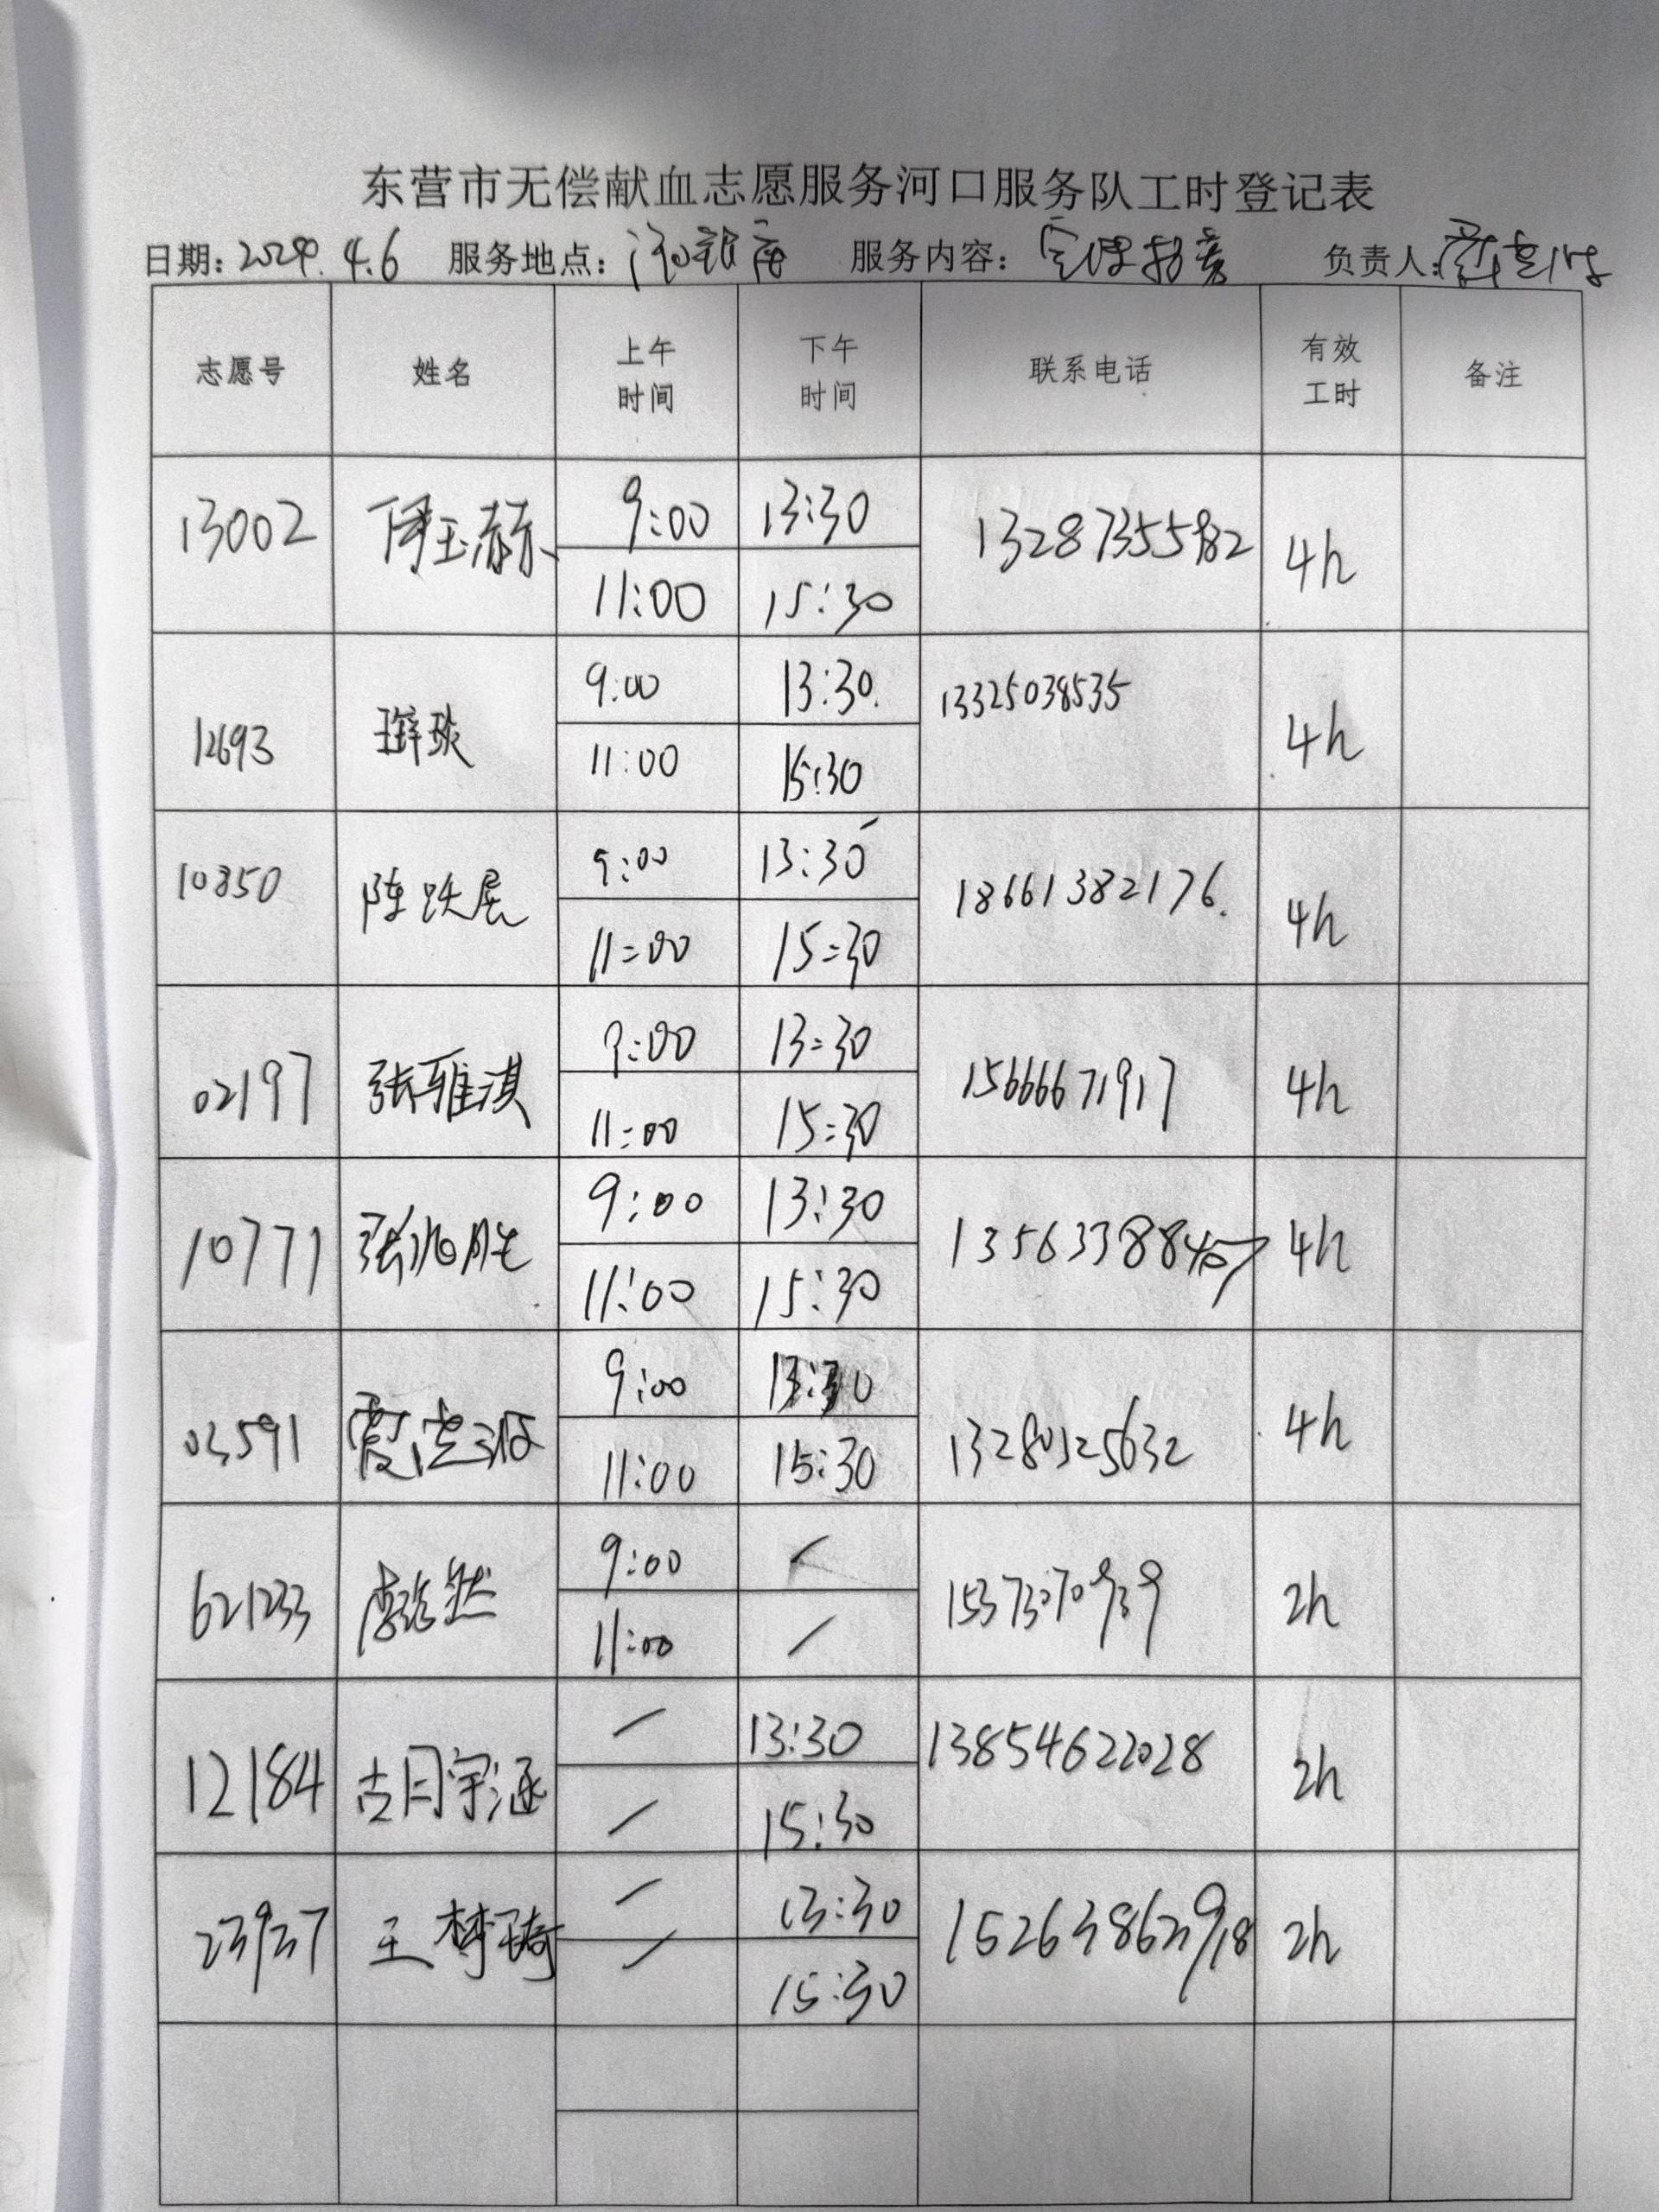 东营市无偿献血志愿服务河口服务队工时登记表
日期: 2024.4.6 服务地点: 服务内容: 负责人:
志愿号 姓名 上午时间 下午时间 联系电话 有效工时 备注
13002 9:00 13:30 13287355582 4h
11:00 15:30
12693 9:00 13:30 13325038535 4h
11:00 15:30
10350 陈跃展 9:00 13:30 18661382176 4h
11:00 15:30
02197 张雅淇 9:00 13:30 15666671917 4h
11:00 15:30
10771 9:00 13:30 13563388457 4h
11:00 15:30
03591 9:00 13:30 13280325632 4h
11:00 15:30
621233 9:00 / 15373070939 2h
11:00 /
12184 胡宇涵 / 13:30 13854622028 2h
/ 15:30
23937 王梦琦 / 13:30 2h
/ 15:30